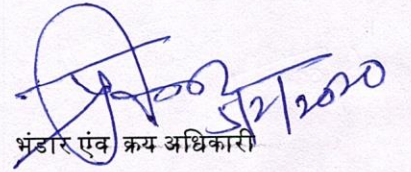 5/2/2020
भंडार एंव क्रय अधिकारी